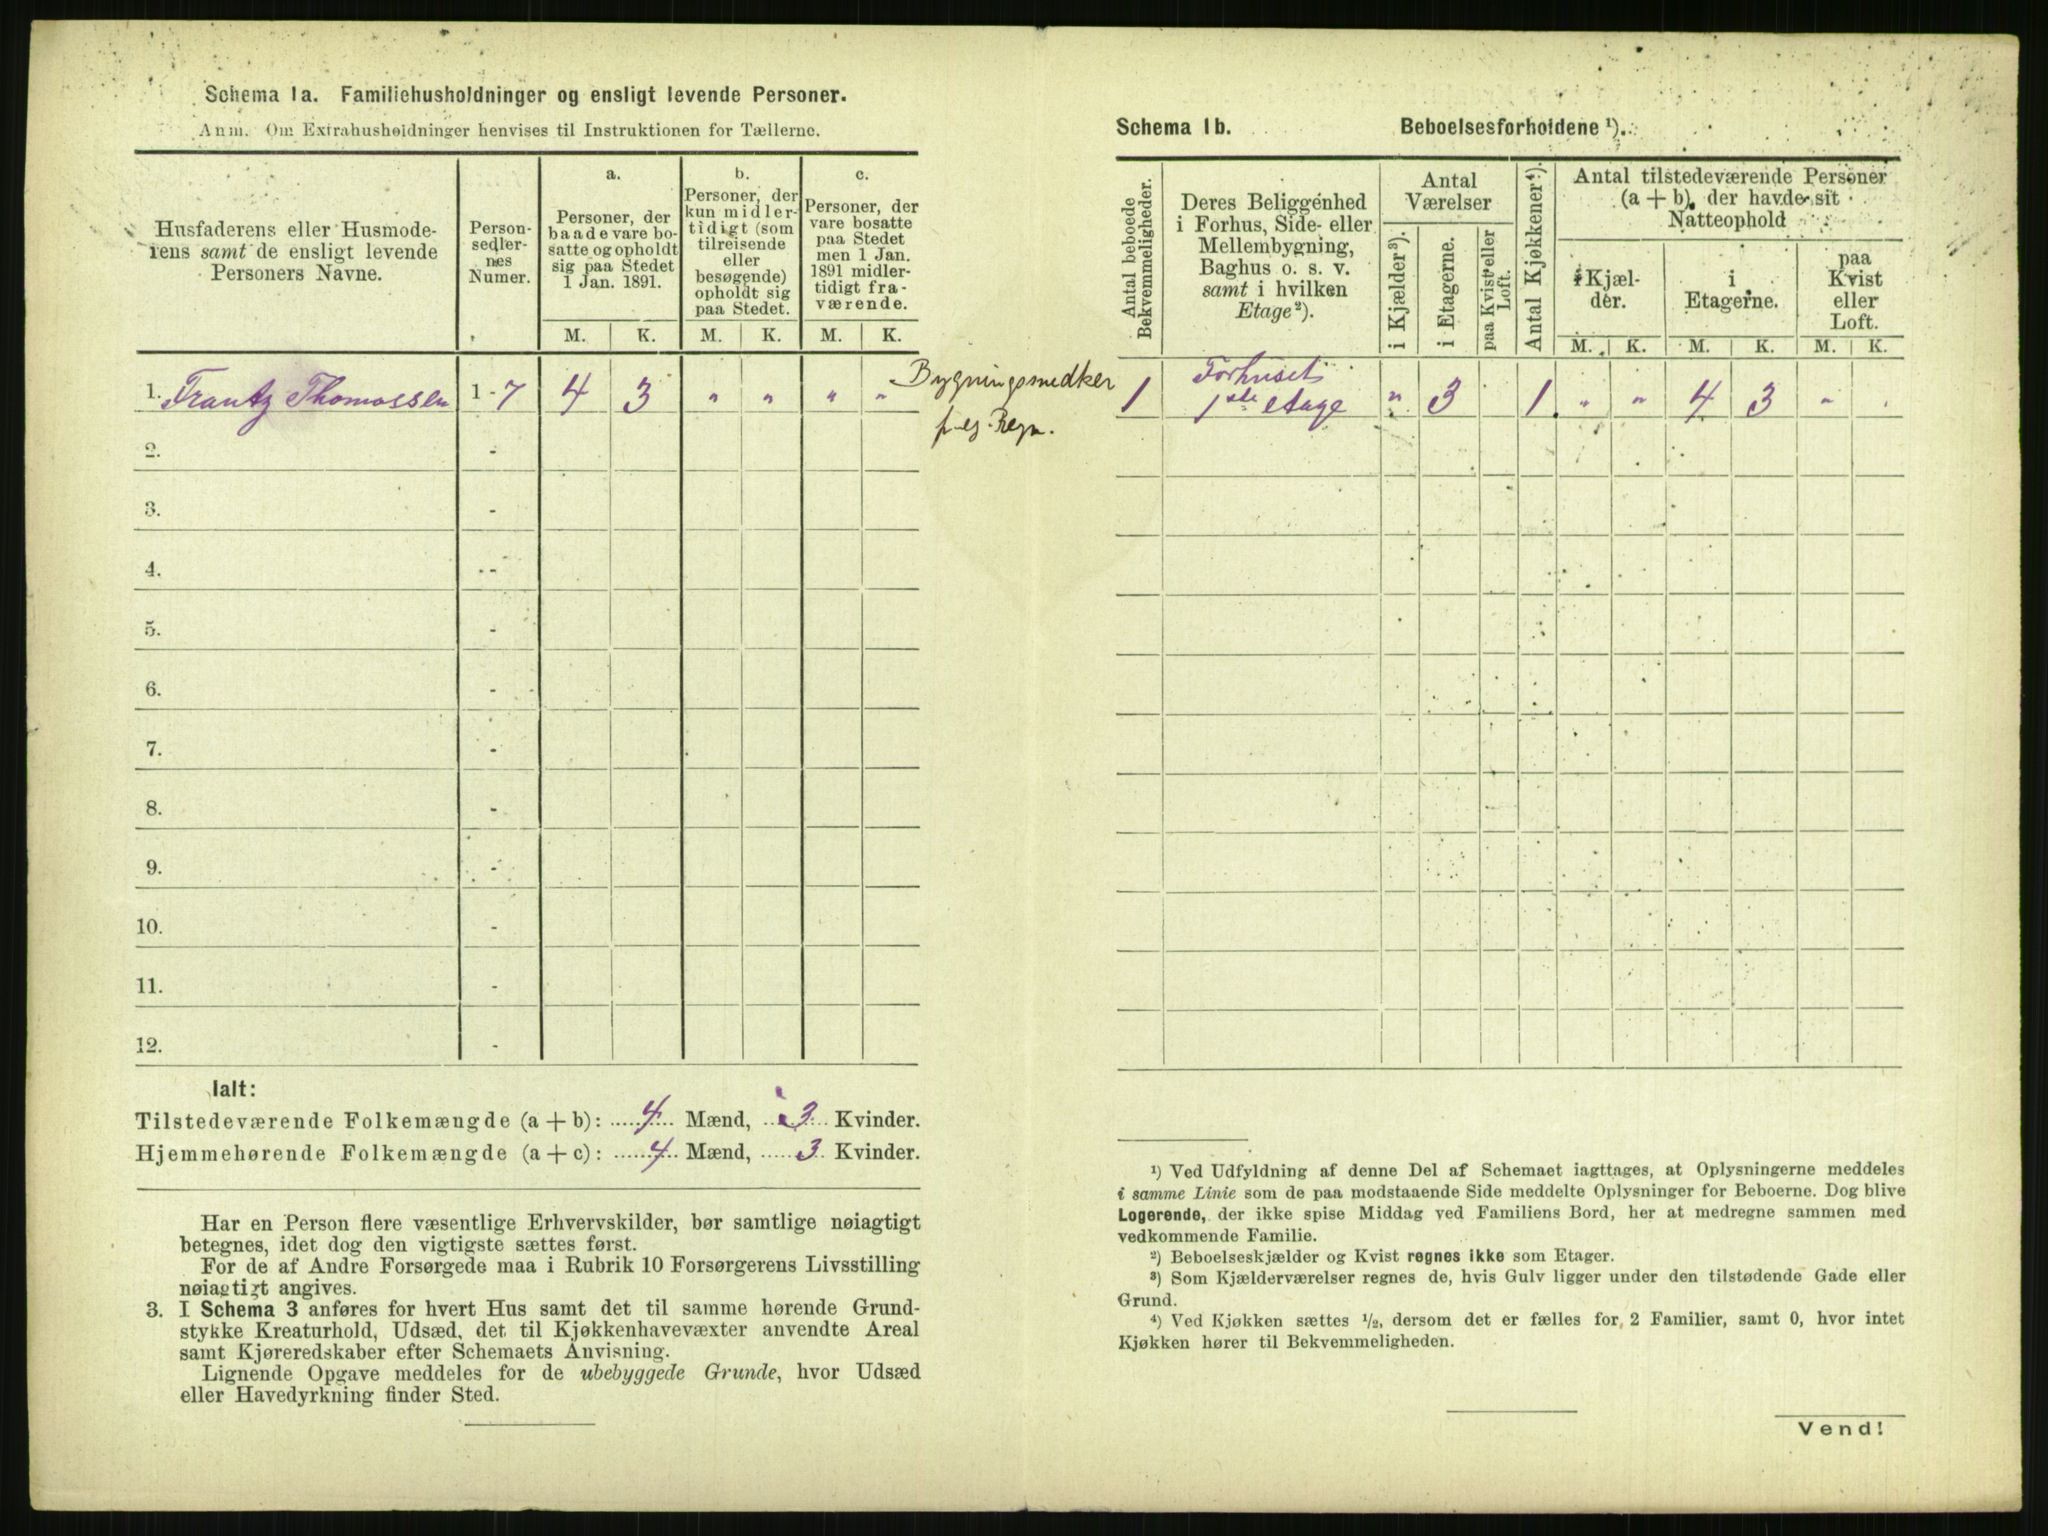 Schema 1a. Familiehusholdninger og ensligt levende Personer.
Anm. Om Extrahusholdninger henvises til Instruktionen for Tællerne.
Husfaderens eller Husmode-
rens samt de ensligt levende
Personers Navne.
Person-
sedler-
nes
Numer.
a.
Personer, der
baade vare bo-
satte og opholdt
sig paa Stedet
1 Jan. 1891.
b.
Personer, der
kun midler-
tidigt (som
tilreisende
eller
besøgende)
opholdt sig
paa Stedet.
c.
Personer, der
vare bosatte
paa Stedet
men 1 Jan.
1891 midler-
tidigt fra-
værende.
M. K. M. K. M. K.
1. Frantz Thomassen 1-7 4 3 " " " "
Bygningssnedker
f. eg. Regn.
2. -
3. -
4. -
5. -
6. -
7. -
8. -
9. -
10. -
11. -
12. -
Ialt:
Tilstedeværende Folkemængde (a + b): 4 Mænd, 3 Kvinder.
Hjemmehørende Folkemængde (a + c): 4 Mænd, 3 Kvinder.
Har en Person flere væsentlige Erhvervskilder, bør samtlige nøiagtigt
betegnes, idet dog den vigtigste sættes først.
For de af Andre Forsørgede maa i Rubrik 10 Forsørgerens Livsstilling
nøiagtigt angives.
3. I Schema 3 anføres for hvert Hus samt det til samme hørende Grund-
stykke Kreaturhold, Udsæd, det til Kjøkkenhavevæxter anvendte Areal
samt Kjøreredskaber efter Schemaets Anvisning.
Lignende Opgave meddeles for de ubebyggede Grunde, hvor Udsæd
eller Havedyrkning finder Sted.
Schema 1b. Beboelsesforholdene ¹).
Antal beboede
Bekvemmeligheder.
Deres Beliggenhed
i Forhus, Side- eller
Mellembygning,
Baghus o. s. v.
samt i hvilken
Etage²).
Antal
Værelser
i Kjælder³).
i Etagerne.
paa Kvist eller
Loft.
Antal Kjøkkener⁴).
Antal tilstedeværende Personer
(a + b), der havde sit
Natteophold
i Kjæl-
der.
i
Etagerne.
paa
Kvist
eller
Loft.
M. K. M. K. M. K.
1 Forhuset
1ste etage " 3 1 " " 4 3 "
¹) Ved Udfyldning af denne Del af Schemaet iagttages, at Oplysningerne meddeles
i samme Linie som de paa modstaaende Side meddelte Oplysninger for Beboerne. Dog blive
Logerende, der ikke spise Middag ved Familiens Bord, her at medregne sammen med
vedkommende Familie.
²) Beboelseskjælder og Kvist regnes ikke som Etager.
³) Som Kjælderværelser regnes de, hvis Gulv ligger under den tilstødende Gade eller
Grund.
⁴) Ved Kjøkken sættes ½, dersom det er fælles for 2 Familier, samt 0, hvor intet
Kjøkken hører til Bekvemmeligheden.
Vend!